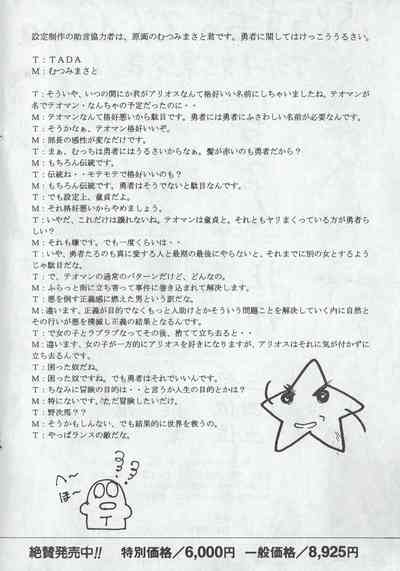 設定制作の助言協力者は、原画のむつみまさと君です。勇者に関してはけっこううるさい。
T：TADA
M：むつみまさと
T：そういや、いつの間にか君がアリオスなんて格好いい名前にしちゃいましたね。テオマンが
名でテオマン・なんちゃの予定だったのに・・
M：テオマンなんて格好悪いから駄目です。勇者には勇者にふさわしい名前が必要なんです。
T：そうかなぁ、テオマン格好いいぞ。
M：部長の感性が変なだけです。
T：まぁ、むっちは勇者にはうるさいからなぁ。髪が赤いのも勇者だから？
M：もちろん伝統です。
T：伝統ね・・モテモテで格好いいのも？
M：もちろん伝統です。勇者はそうでないと駄目なんです。
T：でも設定上、童貞だよ。
M：それ格好悪いからやめましょう。
T：いやだ、これだけは譲れないね。テオマンは童貞と。それともヤリまくっている方が勇者ら
しい？
M：それも嫌です。でも一度くらいは・・
T：いや、勇者たるのも真に愛する人と最期の最後にやらないと、それまでに別の女とするよう
じゃ駄目だな。
T：で、テオマンの通常のパターンだけど、どんなの。
M：ふらっと街に立ち寄って事件に巻き込まれて解決します。
T：悪を倒す正義感に燃えた男という訳だな。
M：違います。正義が目的でなくもっと人助けとかそういう問題ことを解決していく内に自然と
その行いが悪を撲滅し正義の結果となるんです。
T：で女の子とラブラブなってその後、捨てて立ち去ると・・
M：違います、女の子が一方的にアリオスを好きになりますが、アリオスはそれに気が付かずに
立ち去るんです。
T：困った奴だね。
M：困った奴ですね。でも勇者はそれでいいんです。
T：ちなみに冒険の目的は・・と言うか人生の目的とかは？
M：特にないです。ただ冒険したいだけ。
T：野次馬？？
M：そうかもしんない、でも結果的に世界を救うの。
T：やっぱランスの敵だな。
へ〜
ほ〜
T
絶賛発売中!! 特別価格／6,000円 一般価格／8,925円